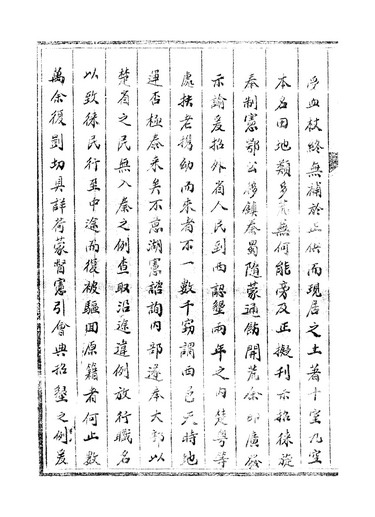 浮血杖終無補於正供而現居之土著十室九空
本名田地類多荒蕪何能旁及正擬刊示招徠旋
奉制憲鄂公移鎮秦蜀隨蒙通飭開荒余即廣發
示諭爰招外省人民到西認墾兩年之內楚粵等
處扶老携幼而來者不一數千窃謂西邑天時地
運否極泰來矣不意湖憲諮詢內部遂奉大部以
楚省之民無入秦之例查取沿途違例放行職名
以致徠民行至中途而復被驅回原籍者何止數
萬余復剴切具詳荷蒙督憲引會典招墾之例爰